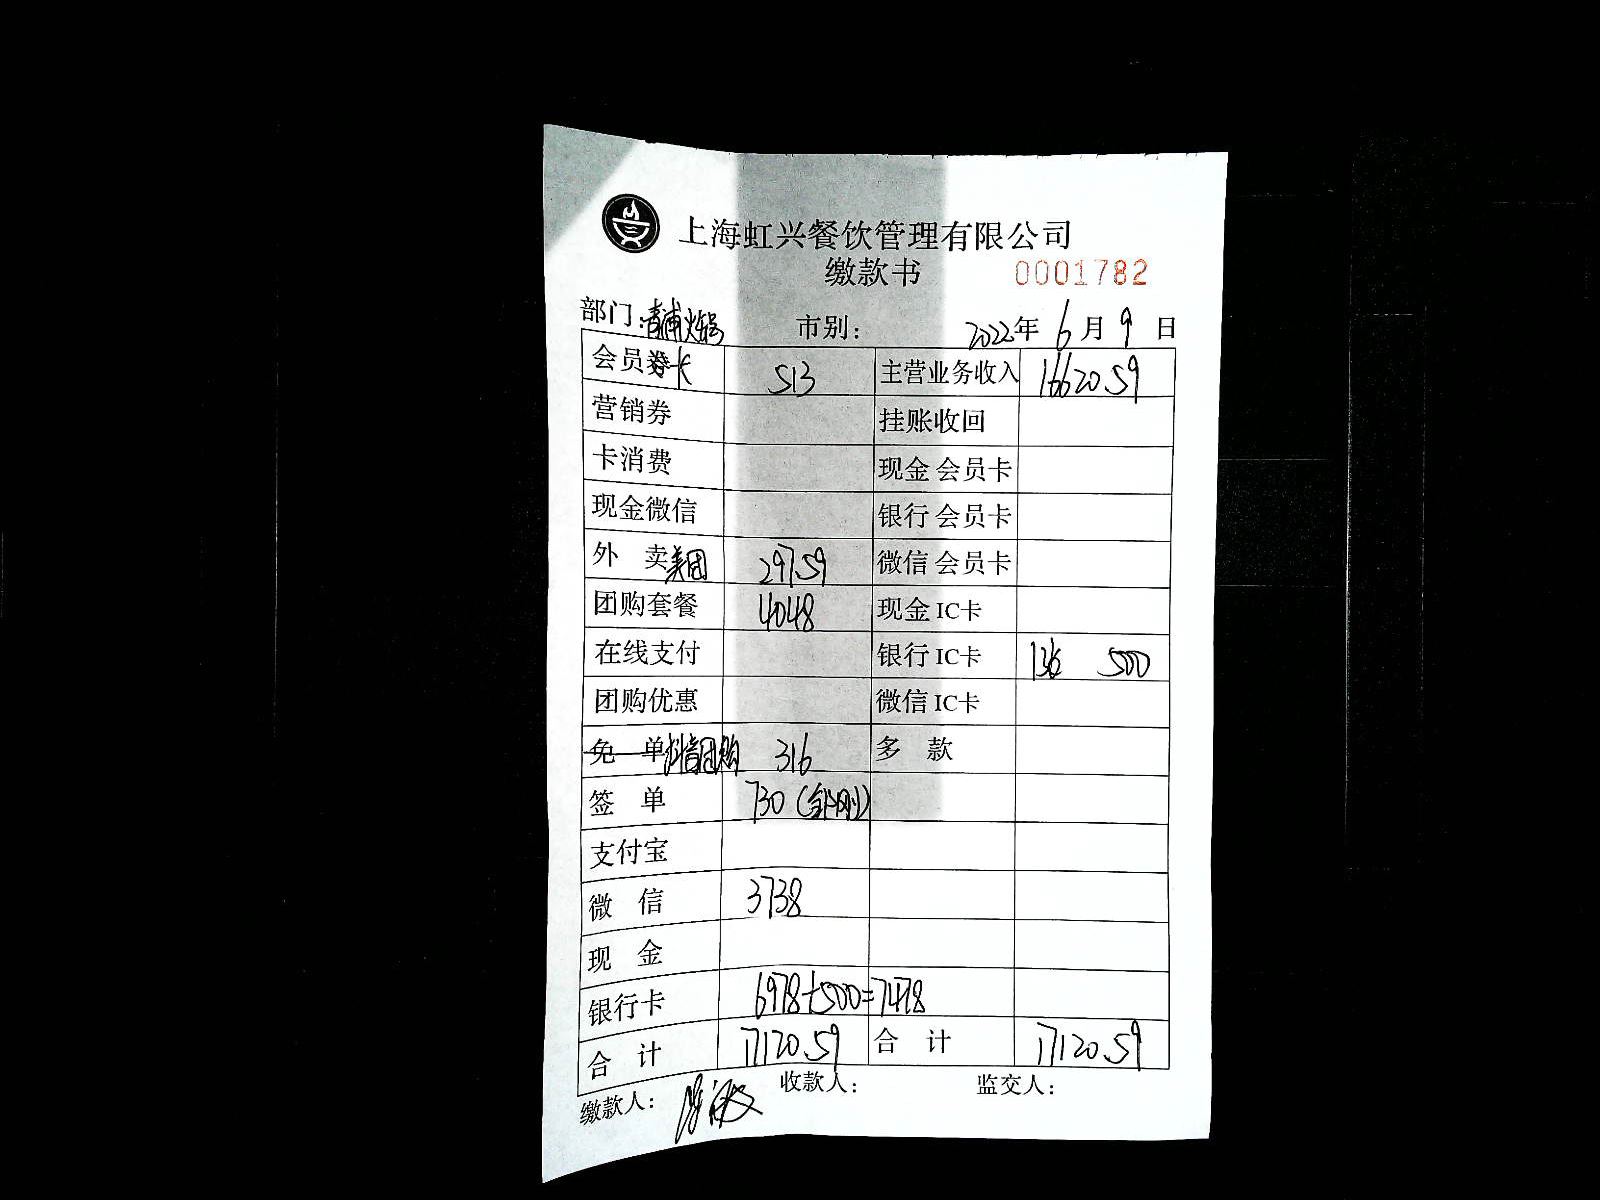 上海虹兴餐饮管理有限公司
缴款书 0001782
部门:青浦火锅 市别: 2022年 6月 9日
会员券卡 513 主营业务收入 16620.59
营销券 挂账收回
卡消费 现金 会员卡
现金微信 银行 会员卡
外 卖美团 297.59 微信 会员卡
团购套餐 4048 现金 IC卡
在线支付 银行 IC卡 500
团购优惠 微信 IC卡
免 单抖音团购 316 多 款
签 单 730
支付宝
微 信 3738
现 金
银行卡 6978+500=7478
合 计 17120.59 合 计 17120.59
缴款人: 收款人: 监交人: